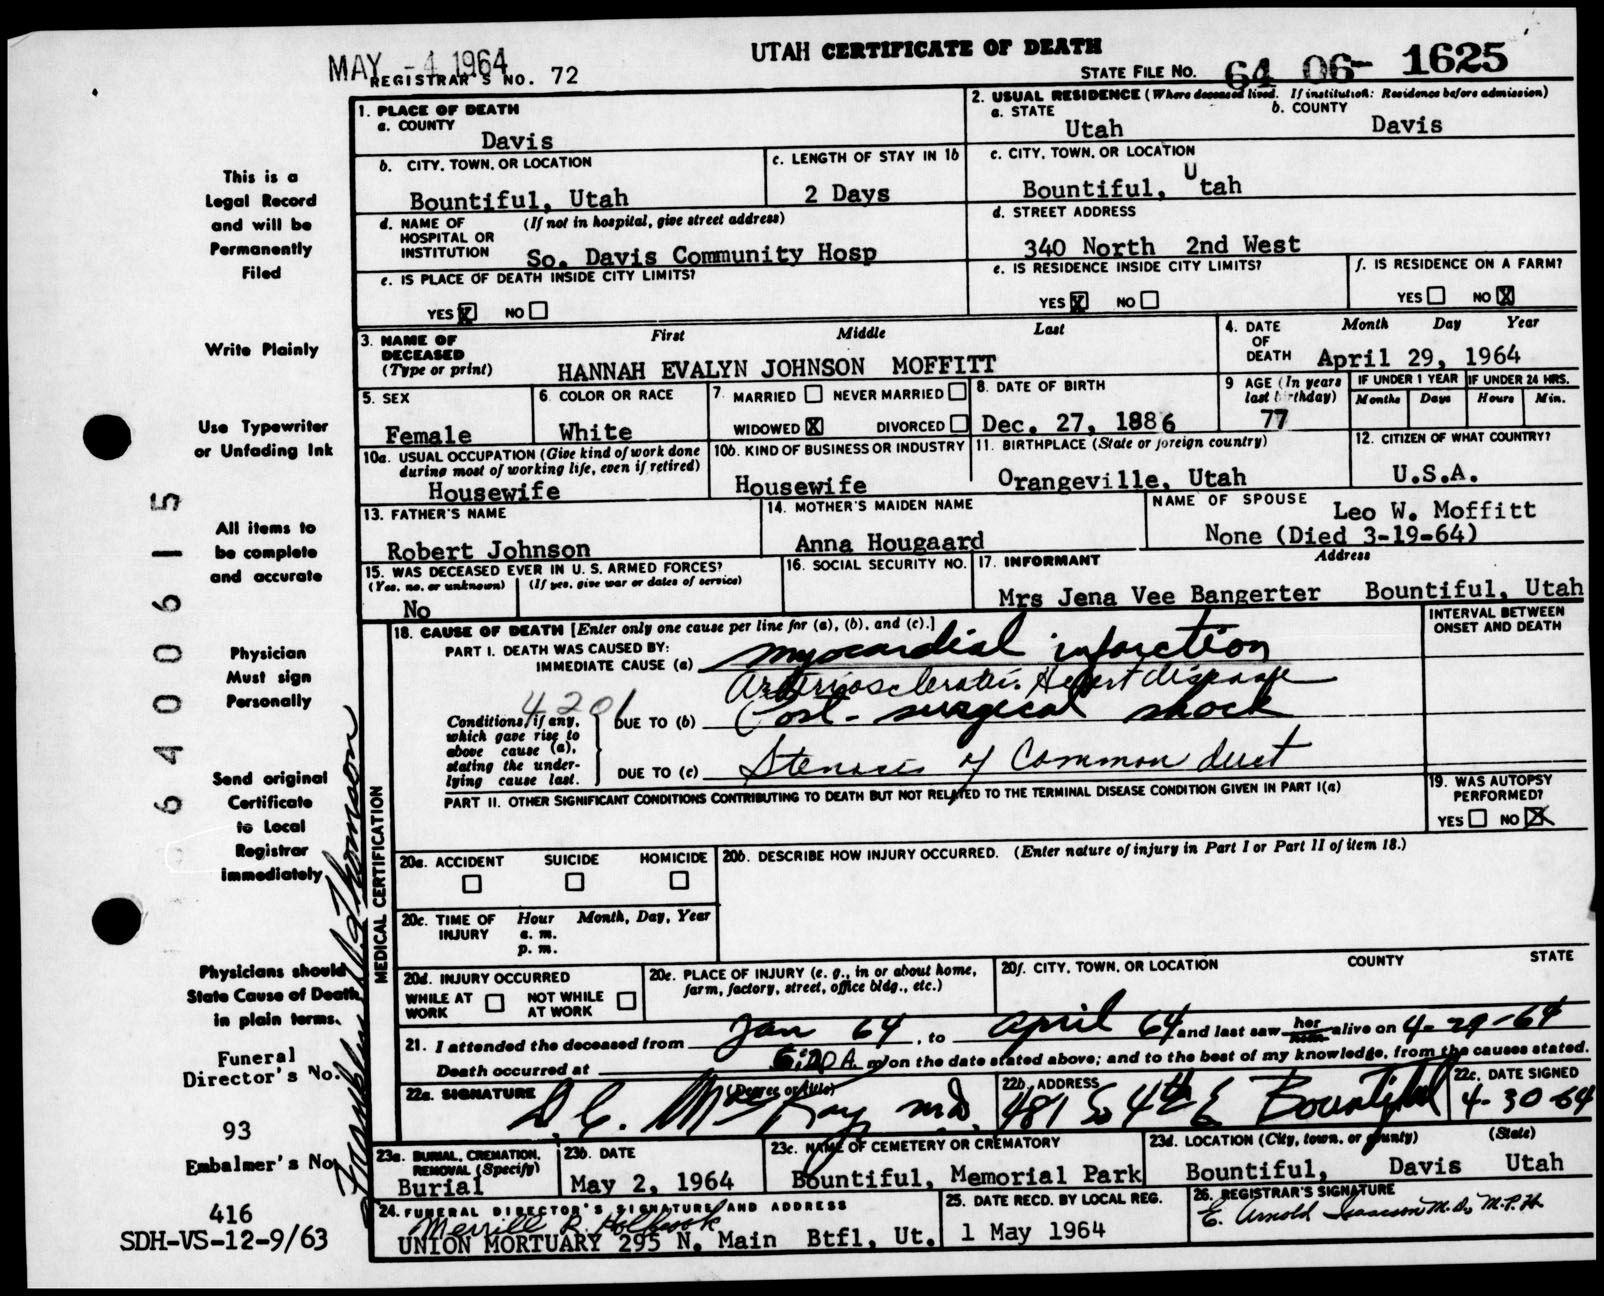 MAY - 4 1964
UTAH CERTIFICATE OF DEATH
REGISTRAR'S NO. 72
STATE FILE NO. 64 06- 1625
1. PLACE OF DEATH
a. COUNTY
Davis
2. USUAL RESIDENCE (Where deceased lived. If institution: Residence before admission)
a. STATE
Utah
b. COUNTY
Davis
b. CITY, TOWN, OR LOCATION
Bountiful, Utah
c. LENGTH OF STAY IN 1b
2 Days
c. CITY, TOWN, OR LOCATION
Bountiful, Utah
d. NAME OF HOSPITAL OR INSTITUTION
(If not in hospital, give street address)
So. Davis Community Hosp
d. STREET ADDRESS
340 North 2nd West
e. IS PLACE OF DEATH INSIDE CITY LIMITS?
YES X NO
e. IS RESIDENCE INSIDE CITY LIMITS?
YES X NO
f. IS RESIDENCE ON A FARM?
YES NO X
3. NAME OF DECEASED
(Type or print)
First Middle Last
HANNAH EVALYN JOHNSON MOFFITT
4. DATE OF DEATH
Month Day Year
April 29, 1964
5. SEX
Female
6. COLOR OR RACE
White
7. MARRIED NEVER MARRIED
WIDOWED X DIVORCED
8. DATE OF BIRTH
Dec. 27, 1886
9 AGE (In years last birthday)
77
IF UNDER 1 YEAR
Months Days
IF UNDER 24 HRS.
Hours Min.
10a. USUAL OCCUPATION (Give kind of work done
during most of working life, even if retired)
Housewife
10b. KIND OF BUSINESS OR INDUSTRY
Housewife
11. BIRTHPLACE (State or foreign country)
Orangeville, Utah
12. CITIZEN OF WHAT COUNTRY?
U.S.A.
13. FATHER'S NAME
Robert Johnson
14. MOTHER'S MAIDEN NAME
Anna Hougaard
NAME OF SPOUSE
Leo W. Moffitt
None (Died 3-19-64)
15. WAS DECEASED EVER IN U. S. ARMED FORCES?
(Yes, no, or unknown) (If yes, give war or dates of service)
No
16. SOCIAL SECURITY NO.
17. INFORMANT Address
Mrs Jena Vee Bangerter Bountiful, Utah
18. CAUSE OF DEATH [Enter only one cause per line for (a), (b), and (c).]
PART I. DEATH WAS CAUSED BY:
IMMEDIATE CAUSE (a) myocardial infarction
Arteriosclerotic Heart disease
4201
Conditions, if any,
which gave rise to
above cause (a),
stating the under-
lying cause last.
DUE TO (b) Post-surgical shock
DUE TO (c) Stenosis of Common duct
INTERVAL BETWEEN
ONSET AND DEATH
PART II. OTHER SIGNIFICANT CONDITIONS CONTRIBUTING TO DEATH BUT NOT RELATED TO THE TERMINAL DISEASE CONDITION GIVEN IN PART I(a)
19. WAS AUTOPSY
PERFORMED?
YES NO X
MEDICAL CERTIFICATION
20a. ACCIDENT SUICIDE HOMICIDE
20b. DESCRIBE HOW INJURY OCCURRED. (Enter nature of injury in Part I or Part II of item 18.)
20c. TIME OF INJURY
Hour Month, Day, Year
a. m.
p. m.
20d. INJURY OCCURRED
WHILE AT WORK NOT WHILE AT WORK
20e. PLACE OF INJURY (e. g., in or about home,
farm, factory, street, office bldg., etc.)
20f. CITY, TOWN, OR LOCATION COUNTY STATE
21. I attended the deceased from Jan 64, to April 64 and last saw her/him alive on 4-29-64
Death occurred at 6:20 A. m. on the date stated above; and to the best of my knowledge, from the causes stated.
22a. SIGNATURE (Degree or title)
D. C. McKay M.D.
22b. ADDRESS
481 So 4th E Bountiful
22c. DATE SIGNED
4-30-64
23a. BURIAL, CREMATION,
REMOVAL (Specify)
Burial
23b. DATE
May 2, 1964
23c. NAME OF CEMETERY OR CREMATORY
Bountiful, Memorial Park
23d. LOCATION (City, town, or county) (State)
Bountiful, Davis Utah
24. FUNERAL DIRECTOR'S SIGNATURE AND ADDRESS
Merrill R. Holbrook
UNION MORTUARY 295 N. Main Btfl, Ut.
25. DATE RECD. BY LOCAL REG.
1 May 1964
26. REGISTRAR'S SIGNATURE
E. Arnold Isaacson M.D., M.P.H.
This is a
Legal Record
and will be
Permanently
Filed
Write Plainly
Use Typewriter
or Unfading Ink
All items to
be complete
and accurate
Physician
Must sign
Personally
Send original
Certificate
to Local
Registrar
immediately
Physicians should
State Cause of Death
in plain terms.
Funeral
Director's No.
93
Embalmer's No.
416
SDH-VS-12-9/63
6400615
Thomson